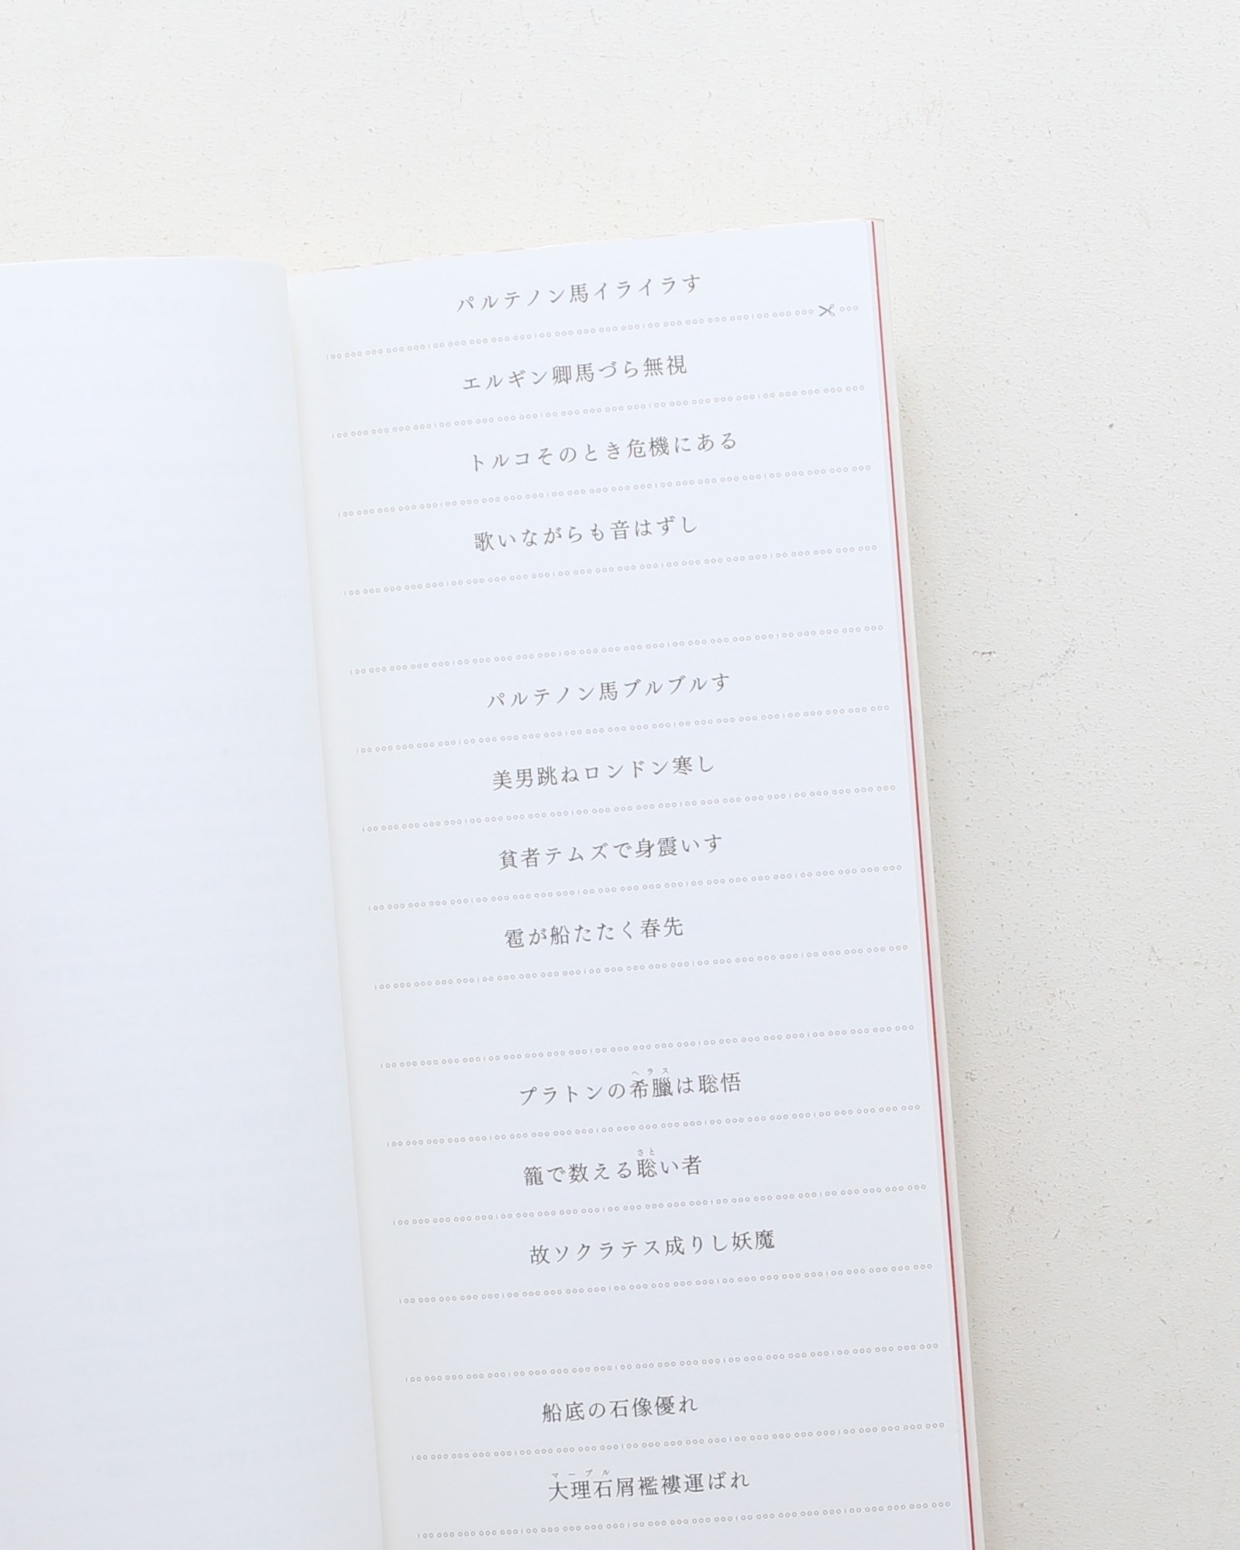 パルテノン馬イライラす
エルギン卿馬づら無視
トルコそのとき危機にある
歌いながらも音はずし
パルテノン馬ブルブルす
美男跳ねロンドン寒し
貧者テムズで身震いす
雹が船たたく春先
ヘラス
プラトンの希臘は聡悟
さと
籠で数える聡い者
故ソクラテス成りし妖魔
船底の石像優れ
マーブル
大理石屑襤褸運ばれ